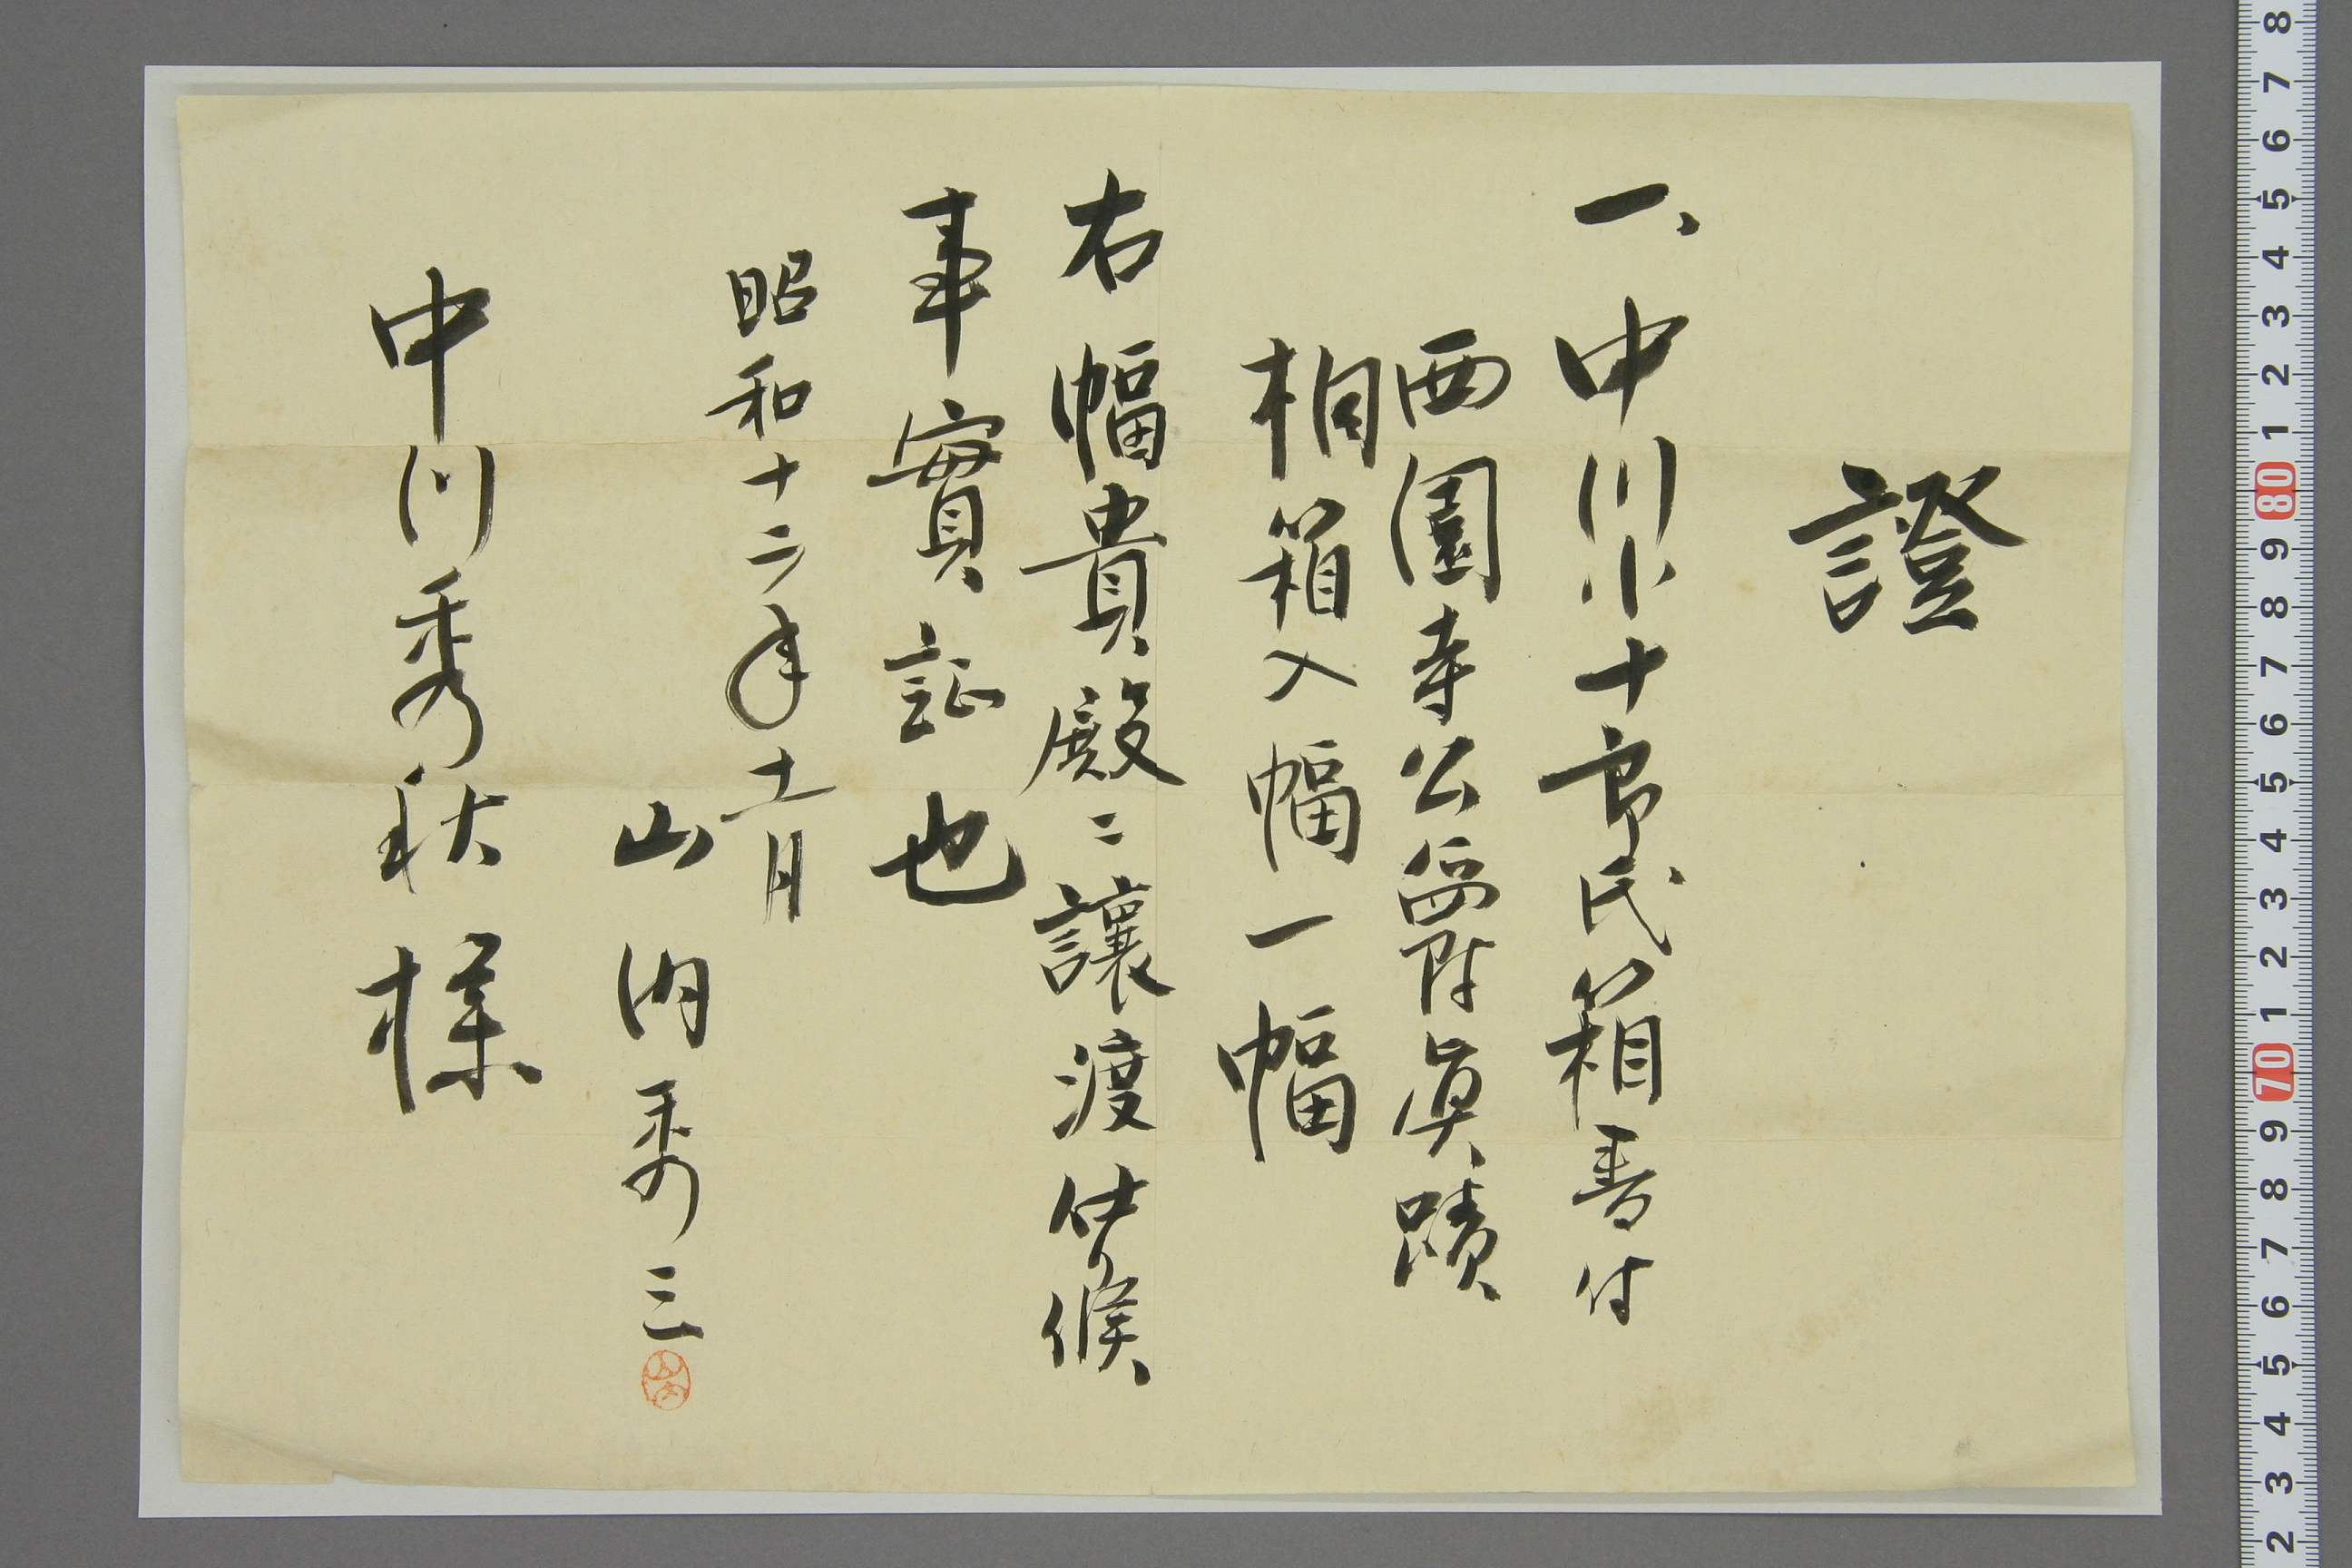 證
一、中川小十郎氏箱書付
西園寺公爵眞蹟
桐箱入幅一幅
右幅貴殿ニ讓渡仕候
事實証也
昭和十二年十一月
山内秀三
山内
中川秀秋様
8
7
6
5
4
3
2
1
80
9
8
7
6
5
4
3
2
1
70
9
8
7
6
5
4
3
2